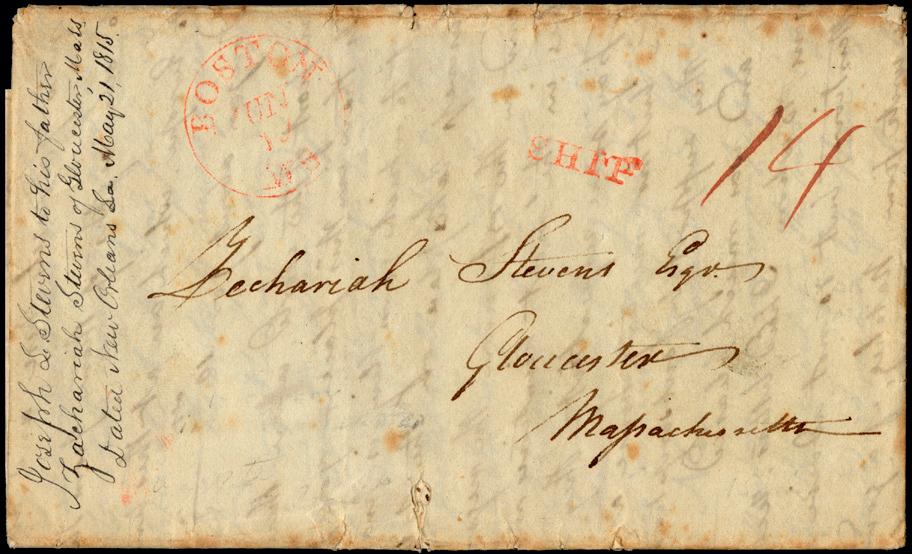 BOSTON
JUN
MS
SHIP
14
Zechariah Stevens Esqr.
Gloucester
Massachusetts
Joseph L Stevens to his father
Zachariah Stevens of Gloucester, Mass
Dated New Orleans La. May 21, 1815.